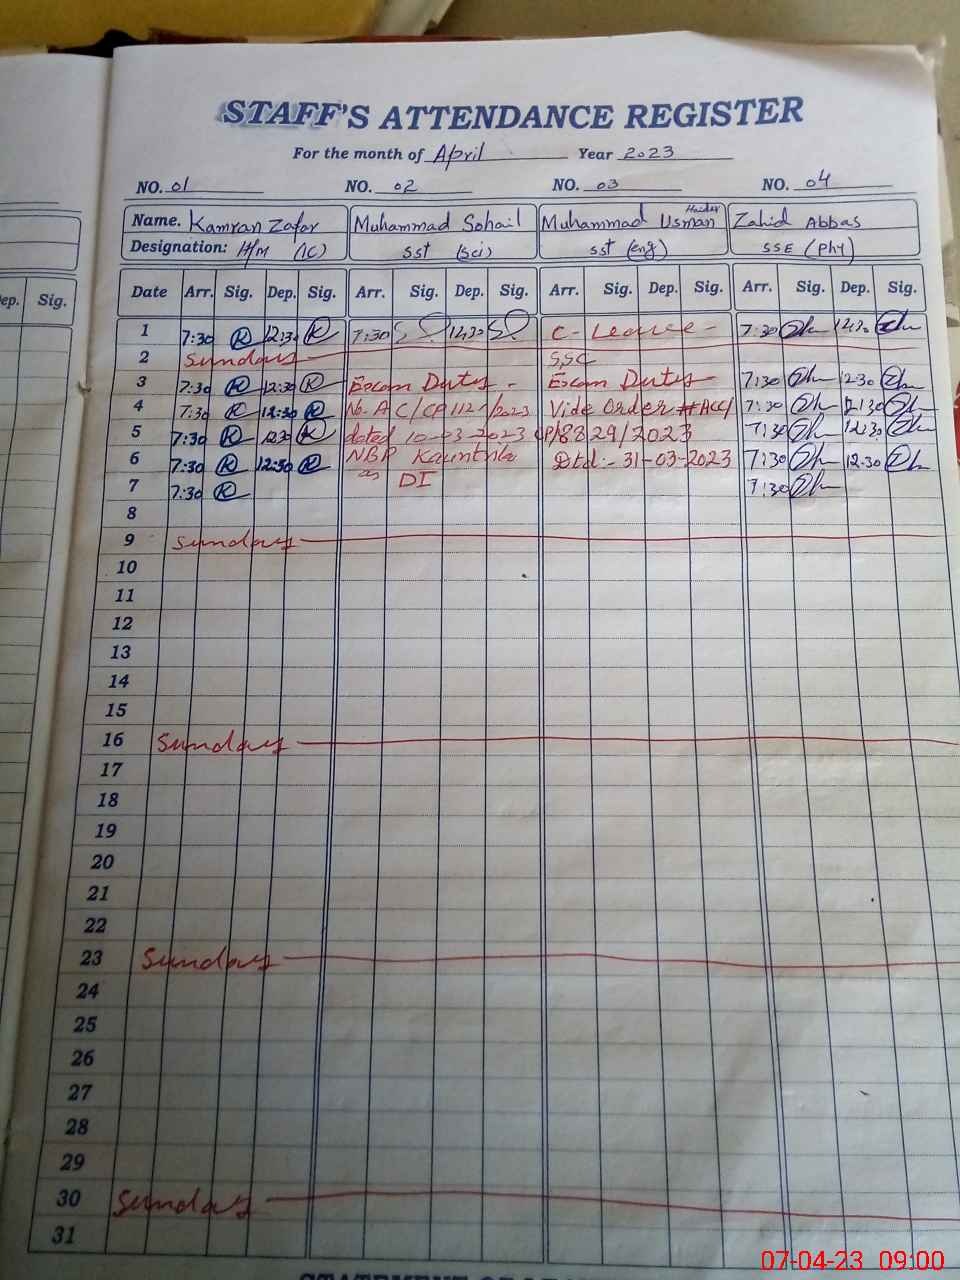 STAFF'S ATTENDANCE REGISTER
For the month of April Year 2023
NO. 01 NO. 02 NO. 03 NO. 04
Name. Kamran Zafar Muhammad Sohail Muhammad Usman Haider Zahid Abbas
Designation: H/M (IC) SST (Sci) SST (eng) SSE (Phy)
ep. Sig. Date Arr. Sig. Dep. Sig. Arr. Sig. Dep. Sig. Arr. Sig. Dep. Sig. Arr. Sig. Dep. Sig.
1 7:30 K 12:30 K 7:30 12:30 C- Leave - 7:30 12:30
2 Sunday SSC
3 7:30 K 12:30 K Exam Duty - Exam Duty 7:30 12:30
4 7:30 K 12:30 K No. AC/CP/1121/2023 Vide Order #ACC/ 7:30 12:30
5 7:30 K 12:30 K dated 10-03-2023 CP/8829/2023 7:30 12:30
6 7:30 K 12:30 K NBP as Dtd:- 31-03-2023 7:30 12:30
7 7:30 K DI 7:30
8
9 Sunday
10
11
12
13
14
15
16 Sunday
17
18
19
20
21
22
23 Sunday
24
25
26
27
28
29
30 Sunday
31
07-04-23 09:00